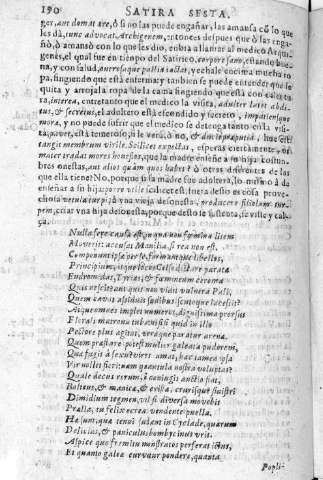 190 SATIRA SESTA.
ger, aut domat aere, ò si no las puede engañar, las amansa cõ lo que
les dà, tunc advocat Archigenem, entonces despues que ò las enga-
ñò, ò amansò con lo que les dio, embia a llamar al medico Arqui
genes, el qual fue en tiempo del Satirico, corpore sano, estando bue-
na, y con salud,
pa, fingiendo que està enferma, y tambien se puede entender que se
quita y arroja la ropa de la cama fingiendo que està con calentu
ra, interea, entretanto que el medico la visita, adulter latet abdi-
tus, & secretus, el adultero està escondido y secreto, impatiensque
morae, y no puede sufrir que el medico se detenga tanto en la visi-
ta, pavet, està temeroso, si le verà, ò no, &
tangit membrum virile. Scilicet expectas, esperas ciertamente, ut
mater tradat mores honestos, que la madre enseñe a su hija costum
bres onestas, aut alios quàm quos habet? ò otras diferentes de las
que ella tiene? No, porque si la madre fue adultera, lo mismo à de
enseñar a su hija: porro utile scilicet est, fuera desto es cosa prove-
chosa vetulae turpi, à una vieja desonesta, producere filiolam tur-
pem, criar una hija desonesta, porque desto se sustenta, se viste y cal-
ça.
Nulla fere causa est, in qua non foemina litem
Moverit: accusat Manilia, si rea non est.
Componunt ipsae per se, formantque libellos,
Principium, atque locos Celso dictare paratae
Endromidas Tyrias, & foemineum ceroma
Quis nescit? aut quis non vidit vulnera Pali,
Quem cavat assiduis sudibus, scutoque lacessit?
Atque omnes implet numeros, dignissima prorsus
Florali matrona tuba: nisi si quid in illo
Pectore plus agitat, veraeque paratur arenae.
Quem praestare potest mulier galeata pudorem,
Quae fugit à sexu? vires amat, haec tamen ipsa
Vir nollet fieri: nam quantula nostra voluptas?
Quale decus rerum, si coniugis auctio fiat,
Balteus, & manicae, & cristae, crurisque sinistri
Dimidium tegmen, vel si diversa movebit
Praelia, tu felix ocreas vendente puella.
Hae sunt, quae tenui sudant in Cyclade, quarum
Delicias, & panniculus bombycinus urit.
Aspice quo fremitu monstratos perferat ictus,
Et quanto galeae curvetur pondere, quanta
Popli-